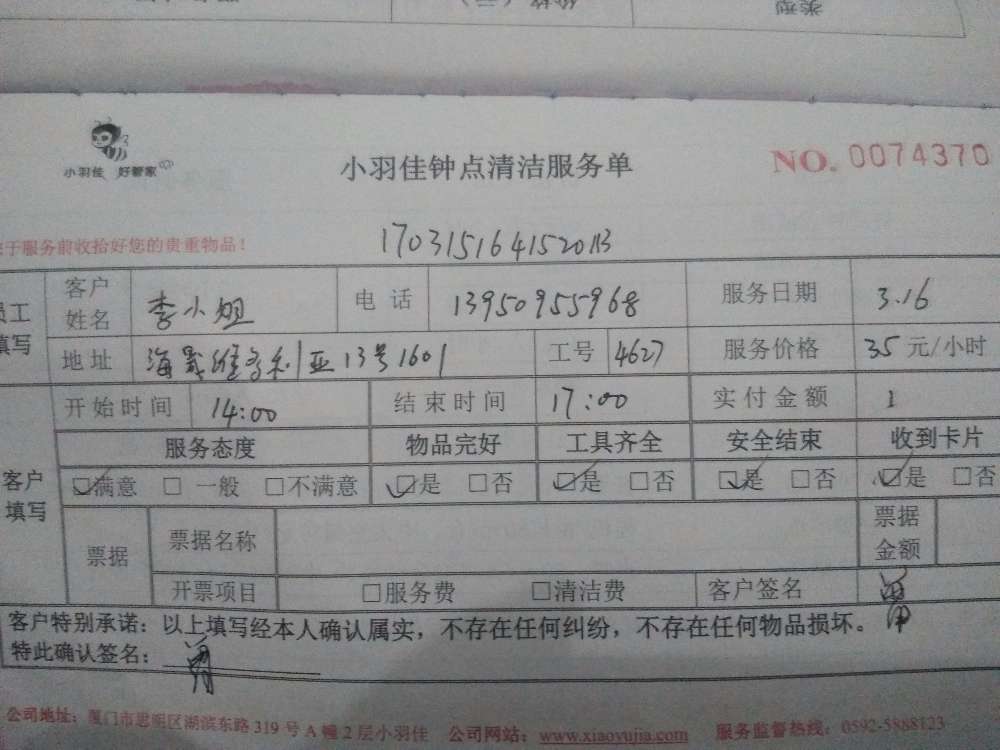 类型
小羽佳 好管家
小羽佳钟点清洁服务单
NO. 0074370
于服务前收拾好您的贵重物品!
170315164152013
员工填写 客户姓名 李小姐 电话 13950955968 服务日期 3.16
地址 海晟维多利亚13号1601 工号 4627 服务价格 35 元/小时
开始时间 14:00 结束时间 17:00 实付金额
客户填写 服务态度 物品完好 工具齐全 安全结束 收到卡片
☑满意 □ 一般 □不满意 ☑是 □否 ☑是 □否 ☑是 □否 ☑是 □否
票据 票据名称 票据金额
开票项目 □服务费 □清洁费 客户签名
客户特别承诺：以上填写经本人确认属实，不存在任何纠纷，不存在任何物品损坏。
特此确认签名：
公司地址：厦门市思明区湖滨东路 319 号 A 幢 2 层小羽佳 公司网站：www.xiaoyujia.com 服务监督热线：0592-5888123